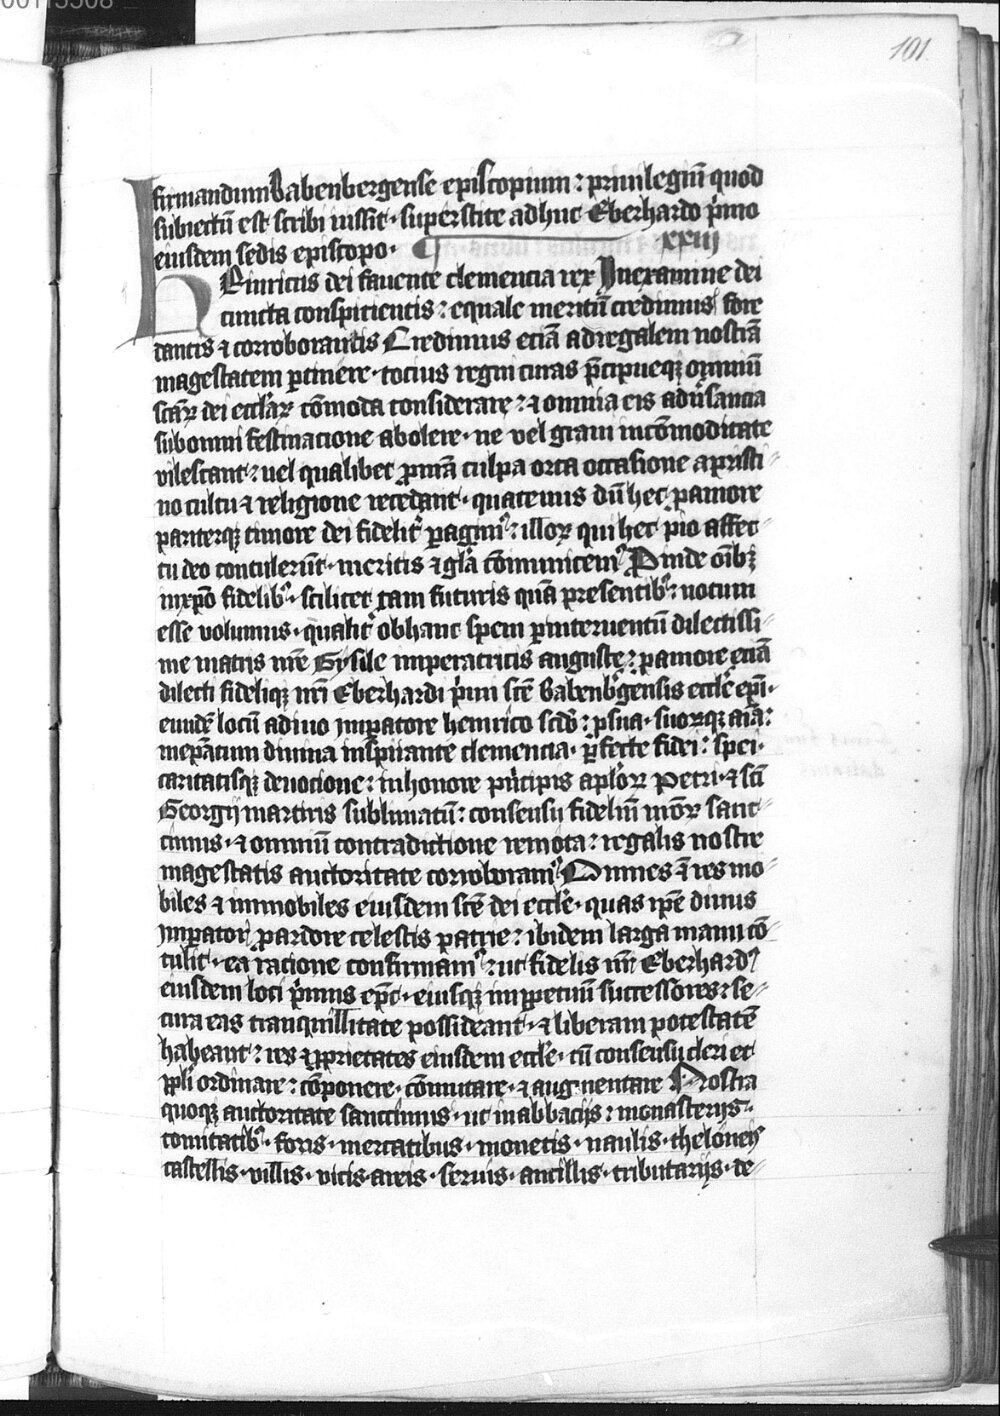 101
firmandum Babenbergense episcopium: priuilegiū quod
subiectū est scribi iussit· superstite adhuc Eberhardo p̄mo
eiusdem sedis episcopo· xxiij
Heinricus dei fauente clemencia rex Inexamine dei
cuncta conspicientis: equale meritū credimus fore
dantis ⁊ corroborantis Credimus eciā adregalem nostrā
magestatem ꝑtinere· tocius regni curas p̄cipueqꝫ omniū
sctāꝝ dei eccl̄iaꝝ cōmoda considerare: ⁊ omnia eis adūsancia
subomni festinacione abolere· ne vel graui incōmoditate
vilescant: uel qualibet ꝓuirā culpa orta occasione apristi
no cultu ⁊ religione recedant· quatenus dū hec ꝑamore
pariterqꝫ timore dei fidelit̄ ꝑagimꝰ: illoꝝ qui hec pio affec
tu deo contulerūt· meritis ⁊ gl̄a cōmunicemꝰ Proinde oībꝫ
inxp̄o fidelibꝰ· scilicet tam futuris quā presentibꝰ: notum
esse volumus· qualit̄ obhanc spem ꝑinteruentū dilectissi
me matris nr̄e Gysile imperatricis auguste: ꝑamore eciā
dilecti fideliqꝫ nr̄i Eberhardi p̄mi sc̄e Babenb̄gensis eccl̄e ep̄i·
eundē locū adiuo imꝑatore heinrico scd̄o: ꝓsua· suorqꝫ aīa:
meꝑatum diuina inspirante clemencia· ꝑfecte fidei: spei·
caritatisqꝫ deuocione: inhonore p̄ncipis apl̄oꝝ Petri· ⁊ scī
Georgij martiris sublimatū: consensu fideliū nr̄oꝝ sanc
cimus· ⁊ omniū contradictione remota: regalis nostre
magestatis auctoritate corroboramꝰ Omnes .n. res mo
biles ⁊ immobiles eiusdem sc̄e dei eccl̄e· quas ip̄e diuus
imꝑator ꝓardore celestis patrie: ibidem larga manu cō
tulit· ea racione confirmamꝰ: ut fidelis nr̄ Eberhardꝰ
eiusdem loci p̄mus ep̄c· eiusqꝫ imꝑpetuū successores: se
cura eas tranquillitate possideant· ⁊ liberam potestatē
habeant: res ⁊ ꝓprietates eiusdem eccl̄e· cū consensu cleri et
ppl̄i ordinare: cōponere· cōmutare· ⁊ augmentare Nostra
quoqꝫ auctoritate sanccimus· ut in abbacijs: monasterijs·
comitatibꝰ· foris· mercatibus· monetis· naulis· theloneis
castellis· villis· vicis· areis· seruis· ancillis· tributarijs· de